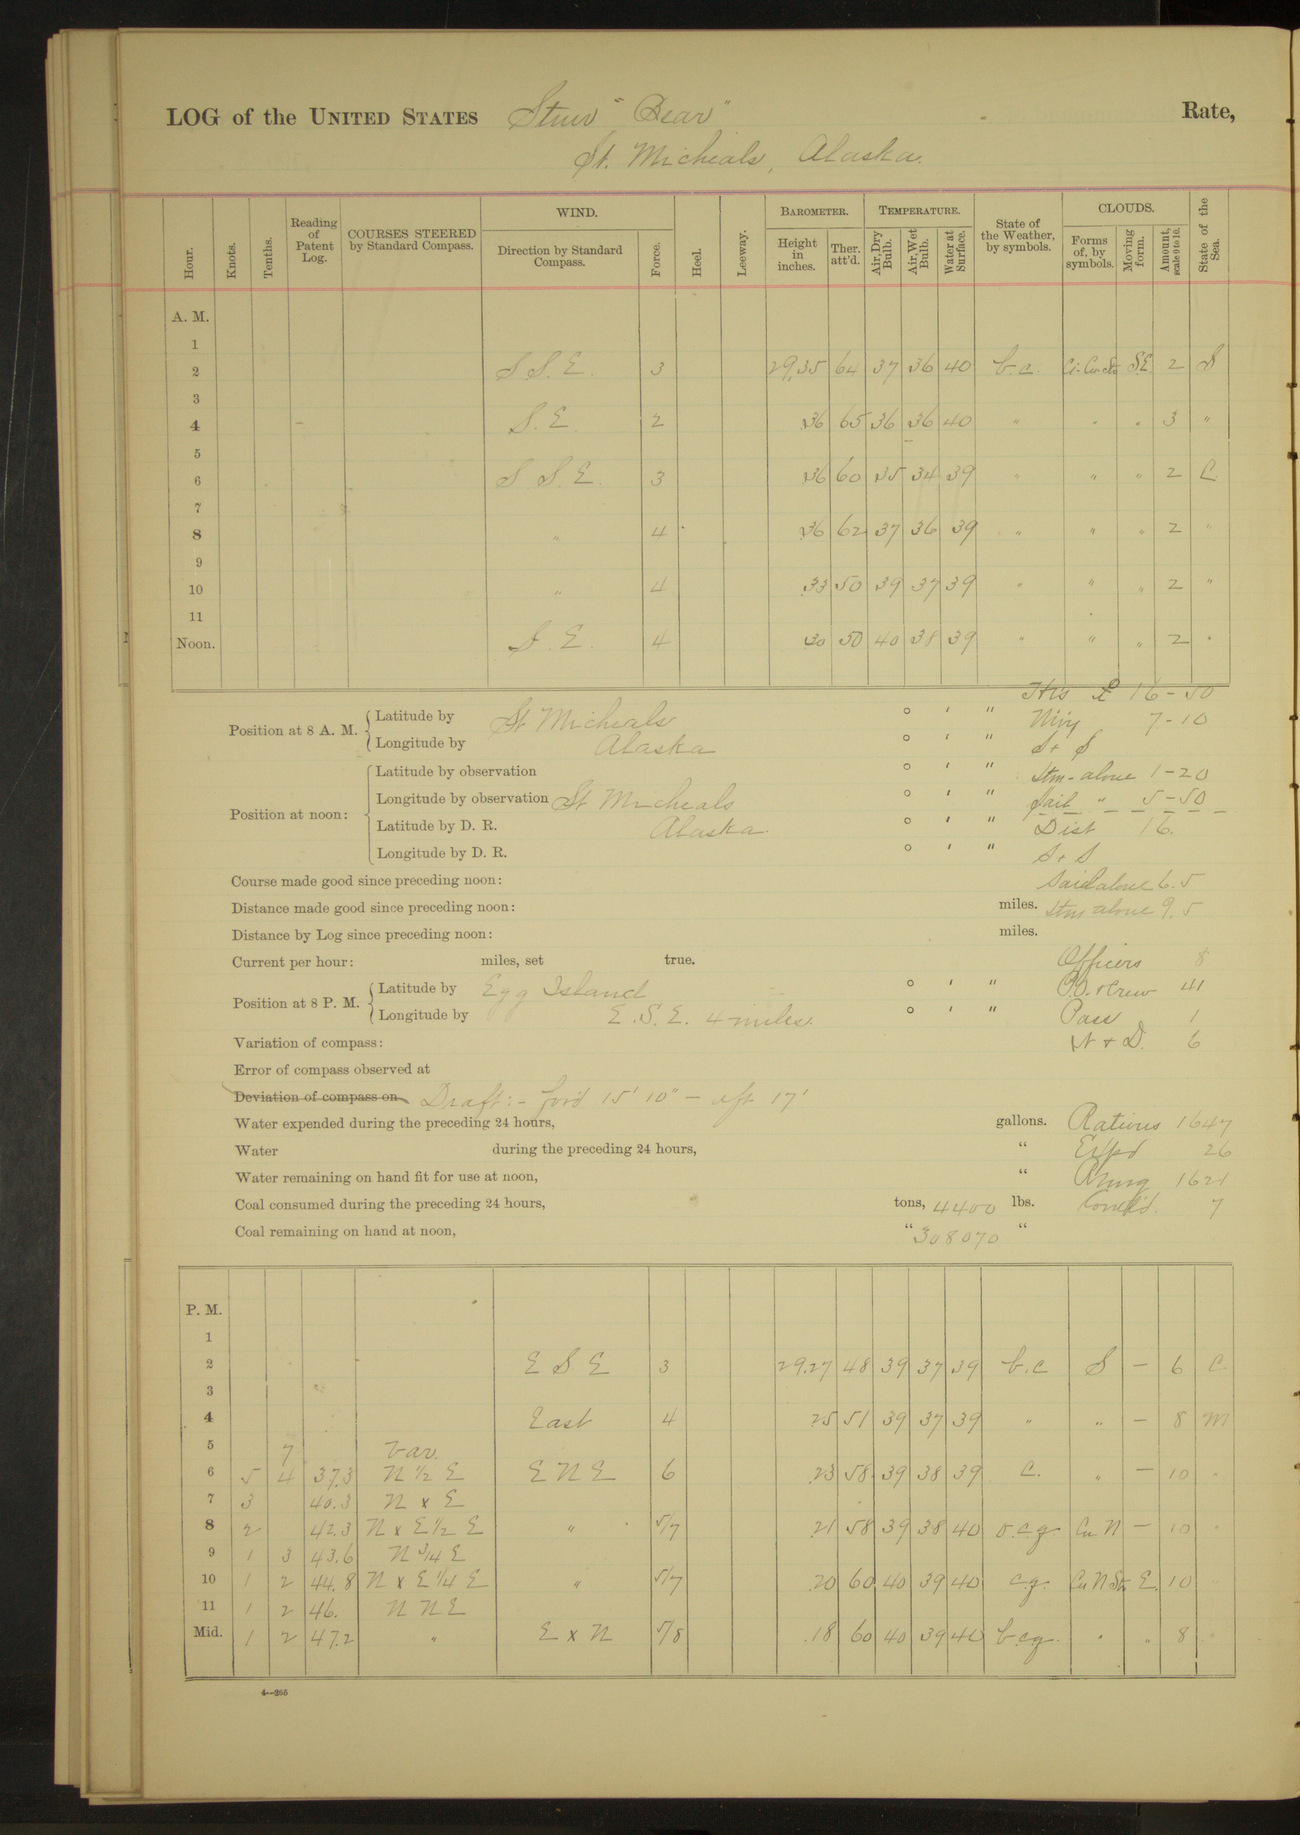 LOG of the UNITED STATES Stmr "Bear" Rate,
St. Micheals, Alaska.
Hour. Knots. Tenths. Reading of Patent Log. COURSES STEERED by Standard Compass. WIND. Direction by Standard Compass. Force. Heel. Leeway. BAROMETER. Height in inches. Ther. att'd. TEMPERATURE. Air, Dry Bulb. Air, Wet Bulb. Water at Surface. State of the Weather, by symbols. CLOUDS. Forms of, by symbols. Moving form. Amount, scale 0 to 10. State of the Sea.
A. M.
1
2 S S. E. 3 29.35 64 37 36 40 b.c. Ci-Cu-St S.E. 2 S
3
4 S. E. 2 .36 65 36 36 40 " " " 3 "
5
6 S S. E. 3 .36 60 35 34 39 " " " 2 C
7
8 " 4 .36 62 37 36 39 " " " 2 "
9
10 " 4 .33 50 39 37 39 " " " 2 "
11
Noon. S. E. 4 30 50 40 38 39 " " " 2 "
16-50
Position at 8 A. M. Latitude by St Micheals ° ' " 7-10
Longitude by Alaska ° ' " S + S
Position at noon: Latitude by observation ° ' " Stm-alone 1-20
Longitude by observation St Micheals ° ' " Sail " 5-50
Latitude by D. R. Alaska. ° ' " Dist 16.
Longitude by D. R. ° ' " S + S
Course made good since preceding noon: Sail alone 6.5
Distance made good since preceding noon: miles. Stm alone 9.5
Distance by Log since preceding noon: miles.
Current per hour: miles, set true. Officers 8
Position at 8 P. M. Latitude by Egg Island ° ' " P.O. & Crew 41
Longitude by E. S. E. 4 miles. ° ' " Pass 1
Variation of compass: N & D. 6
Error of compass observed at
Deviation of compass on Draft:- for'd 15' 10" - aft 17'
Water expended during the preceding 24 hours, gallons. Rations 1647
Water during the preceding 24 hours, " Exp'd 26
Water remaining on hand fit for use at noon, " 1621
Coal consumed during the preceding 24 hours, tons, 4400 lbs. 7
Coal remaining on hand at noon, " 308070 "
P. M.
1
2 E S E 3 29.27 48 39 37 39 b.c S - 6 C.
3
4 East 4 .25 51 39 37 39 " " - 8 M
5 7 Var.
6 5 4 37.3 N ½ E E N E 6 .23 58 39 38 39 c. " - 10 "
7 3 40.3 N x E
8 2 42.3 N x E ½ E " 5/7 .21 58 39 38 40 o.c.g. Cu N - 10 "
9 1 3 43.6 N ¾ E
10 1 2 44.8 N x E ¼ E " 5/7 .20 60 40 39 40 c.g. Cu N St. E. 10 "
11 1 2 46. N N E
Mid. 1 2 47.2 " E x N 5/8 .18 60 40 39 40 b.c.g. " " 8 "
4—265